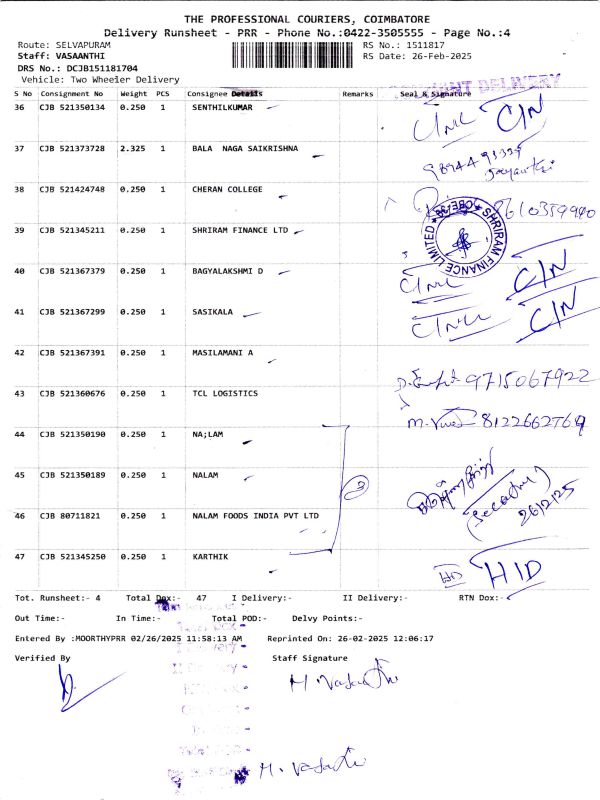 THE PROFESSIONAL COURIERS, COIMBATORE
Delivery Runsheet - PRR - Phone No.:0422-3505555 - Page No.:4
Route: SELVAPURAM RS No.: 1511817
Staff: VASAANTHI RS Date: 26-Feb-2025
DRS No.: DCJB151181704
Vehicle: Two Wheeler Delivery
DELIVERY
S No Consignment No Weight PCS Consignee Details Remarks Seal & Signature
36 CJB 521350134 0.250 1 SENTHILKUMAR C/N
37 CJB 521373728 2.325 1 BALA NAGA SAIKRISHNA
38 CJB 521424748 0.250 1 CHERAN COLLEGE 8610359940
39 CJB 521345211 0.250 1 SHRIRAM FINANCE LTD
SHRIRAM FINANCE LIMITED
40 CJB 521367379 0.250 1 BAGYALAKSHMI D C/N
41 CJB 521367299 0.250 1 SASIKALA C/N
42 CJB 521367391 0.250 1 MASILAMANI A 9715067922
43 CJB 521360676 0.250 1 TCL LOGISTICS 8122662769
44 CJB 521350190 0.250 1 NA;LAM
45 CJB 521350189 0.250 1 NALAM 3
46 CJB 80711821 0.250 1 NALAM FOODS INDIA PVT LTD 26/2/25
47 CJB 521345250 0.250 1 KARTHIK H/D
Tot. Runsheet:- 4 Total Dox:- 47 I Delivery:- II Delivery:- RTN Dox:-
Out Time:- In Time:- Total POD:- Delvy Points:-
Entered By :MOORTHYPRR 02/26/2025 11:58:13 AM Reprinted On: 26-02-2025 12:06:17
Verified By Staff Signature
M. Vasanthi
M. Vasanthi